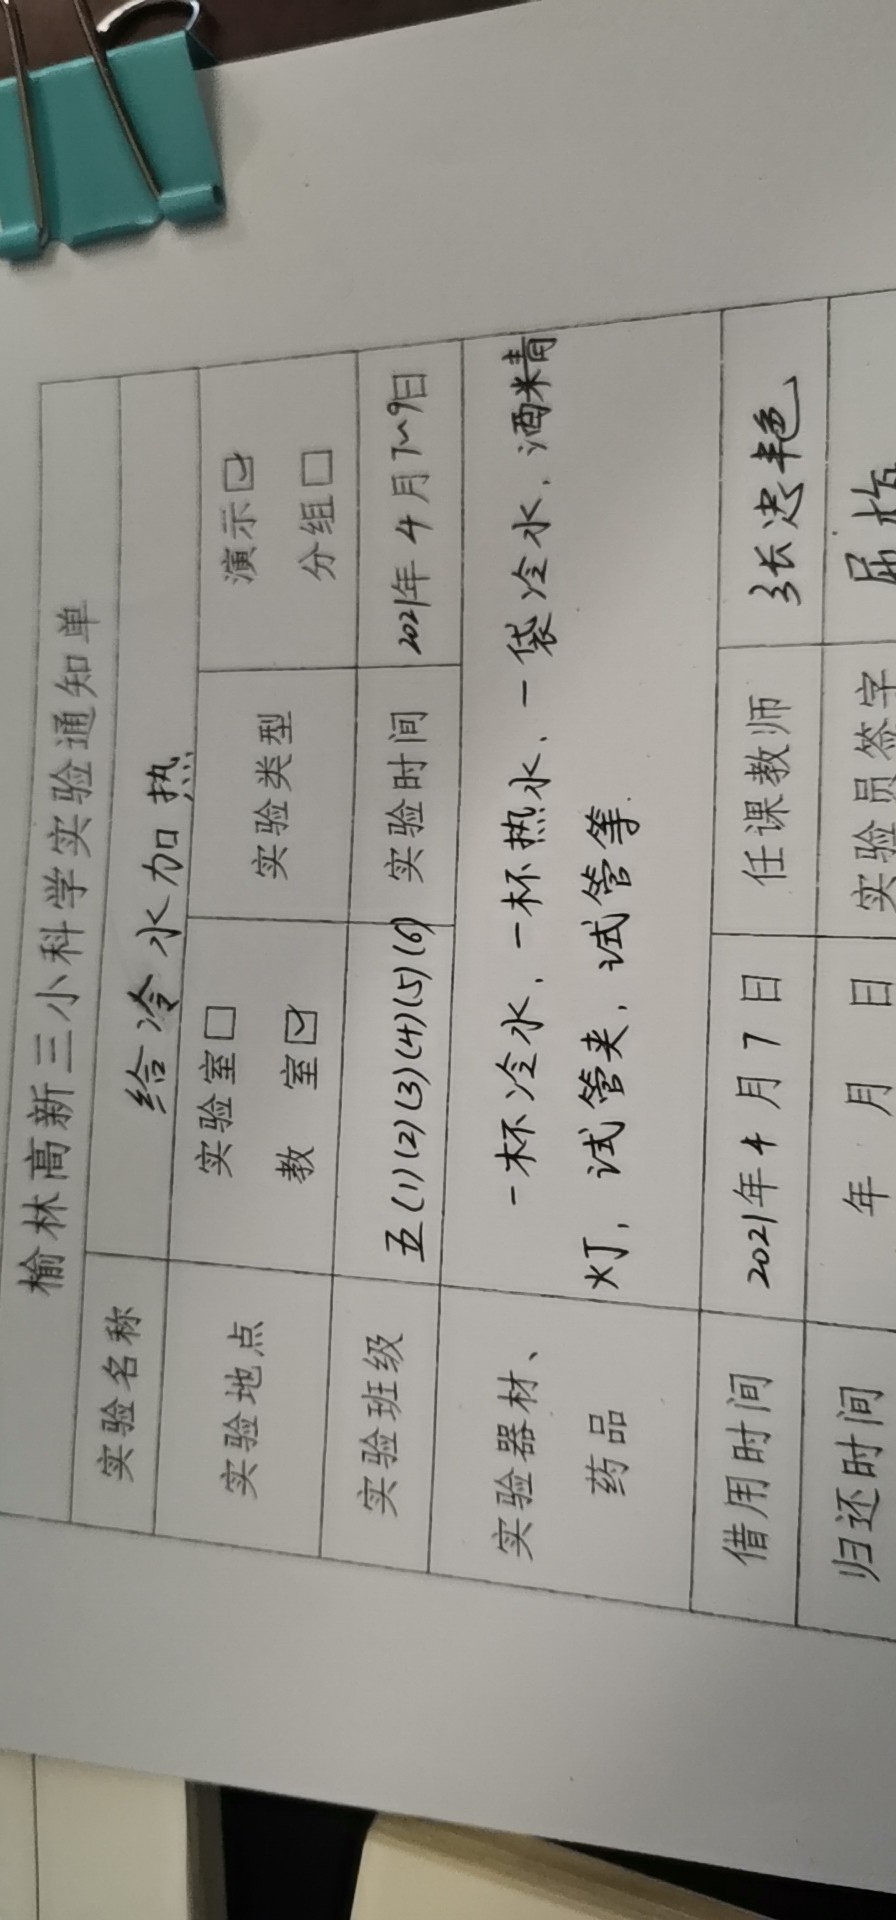 榆林高新三小科学实验通知单
实验名称 给冷水加热
实验地点 实验室□ 教 室☑ 实验类型 演示☑ 分组□
实验班级 五(1)(2)(3)(4)(5)(6) 实验时间 2021年4月7~9日
实验器材、 一杯冷水、一杯热水、一袋冷水、酒精
药品 灯、试管夹、试管等.
借用时间 2021年4月7日 任课教师 张忠艳
归还时间 年 月 日 实验员签字 屈